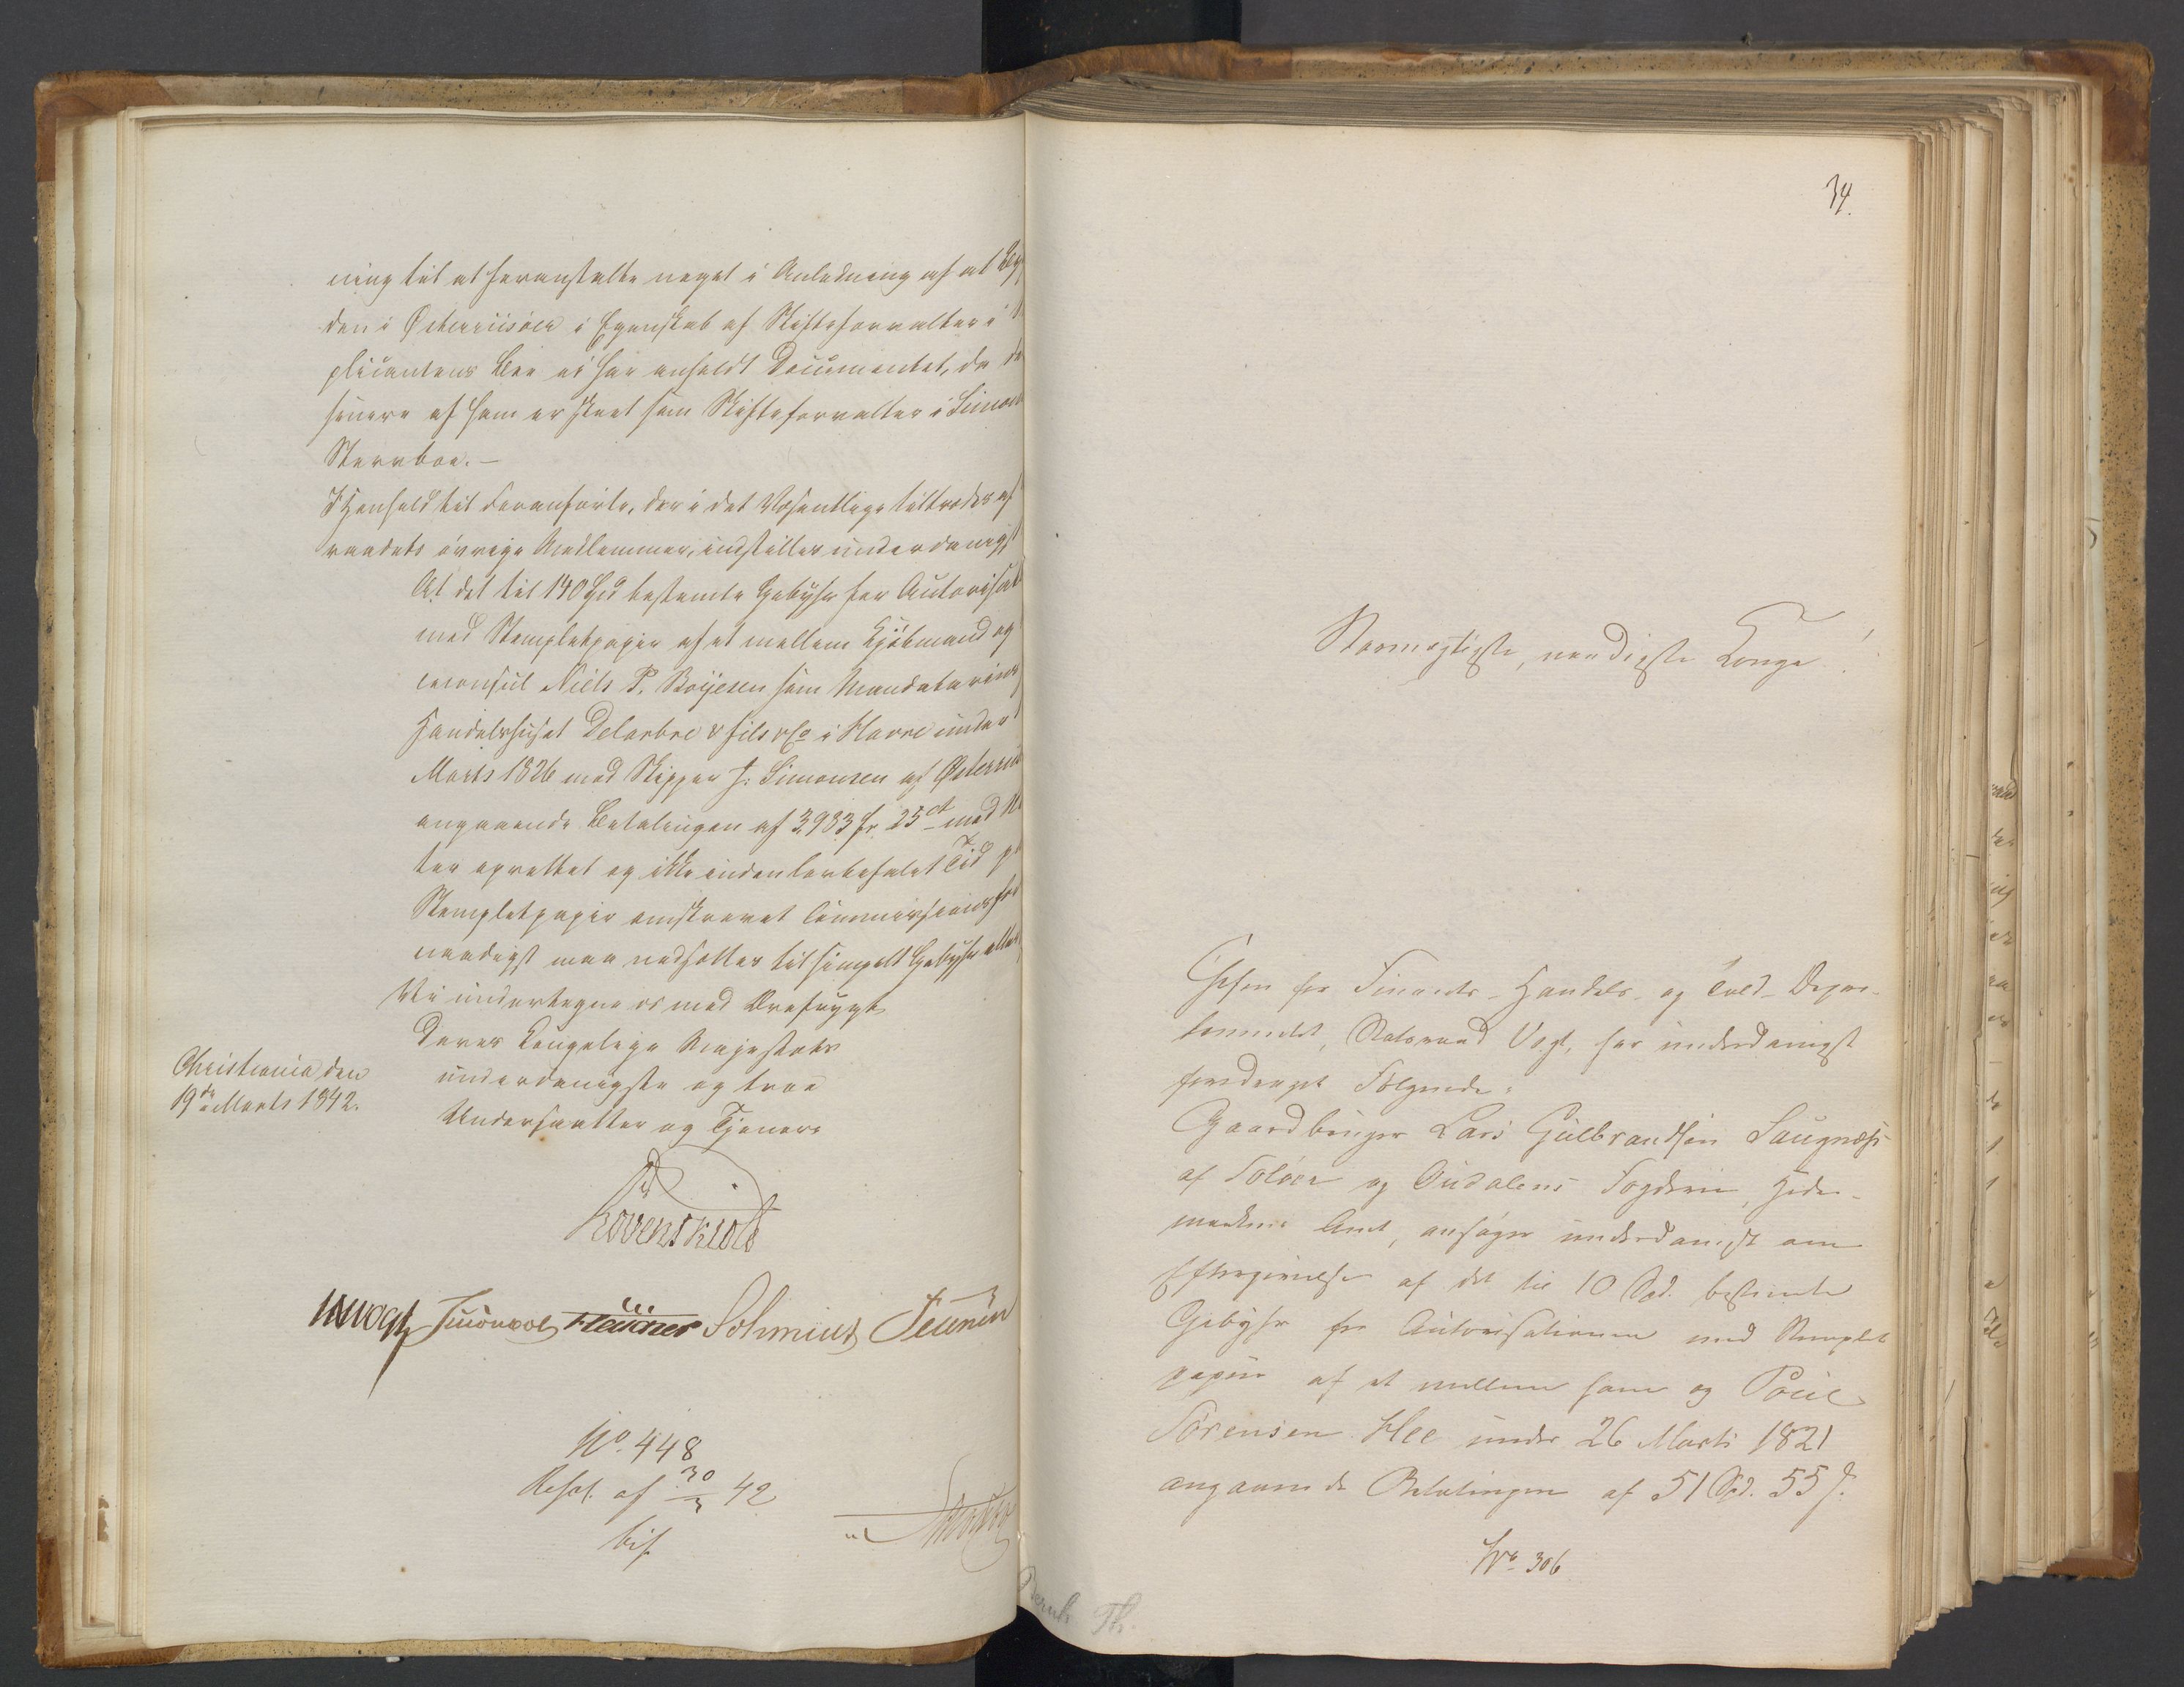 ning til at foranstalte noget i Anledning af at
den i Østerriisøer i Egenskab af Skifteforvalter i
plicantens Boe ei har anholdt Documentet, da
senere af ham er skeet som Skifteforvalter i Simons
Stervboe. —
I Henhold til Foranførte, der i det Væsentlige tiltrædes af
raadets øvrige Medlemmer, indstilles underdanigst
At det til 140 Spd bestemte Gebyhr for Autorisat
med Stemplet papir af et mellem Kjøbmand og
ceconsul Niels P. Boyesen som Mandatarius
Handelshuset Delarbre & fils & Co i Havre under
Marts 1826 med Skipper J. Simonsen af Østerrii
angaaende Betalingen af 3,983 fr. 25 ct med
ter oprettet og ikke inden lovbefalet Tid p
Stempletpapir omskrevet
naadigst maa nedsættes til simpelt Gebyhr
Vi undertegne os med Ærefrygt
Deres Kongelige Majestæts
underdanigste og troe
Undersaatter og Tjenere
Christiania den
19de Marts 1842.
Løvenskiold
Vogt Sibbern Schmidt
No. 448
Resol. af 30/3 42
bif.
34.
Stormægtigste, naadigste Konge!
Chefen for Finants- Handels- og Told-Depar-
tementet, Statsraad Vogt, har underdanigst
foredraget Følgende:
Gaardbruger Lars Gulbrandsen Saugnæs
af Soløer og Oudalens Fogderie, Hede-
markens Amt, ansøger underdanigst om
Eftergivelse af det til 10 Spd. bestemte
Gebyhr for Autorisationen med Stemplet
papiir af et mellem ham og Poul
Sørensen Hee under 26 Marts 1821
angaaende Betalingen af 51 Spd. 55 ß.
No. 306